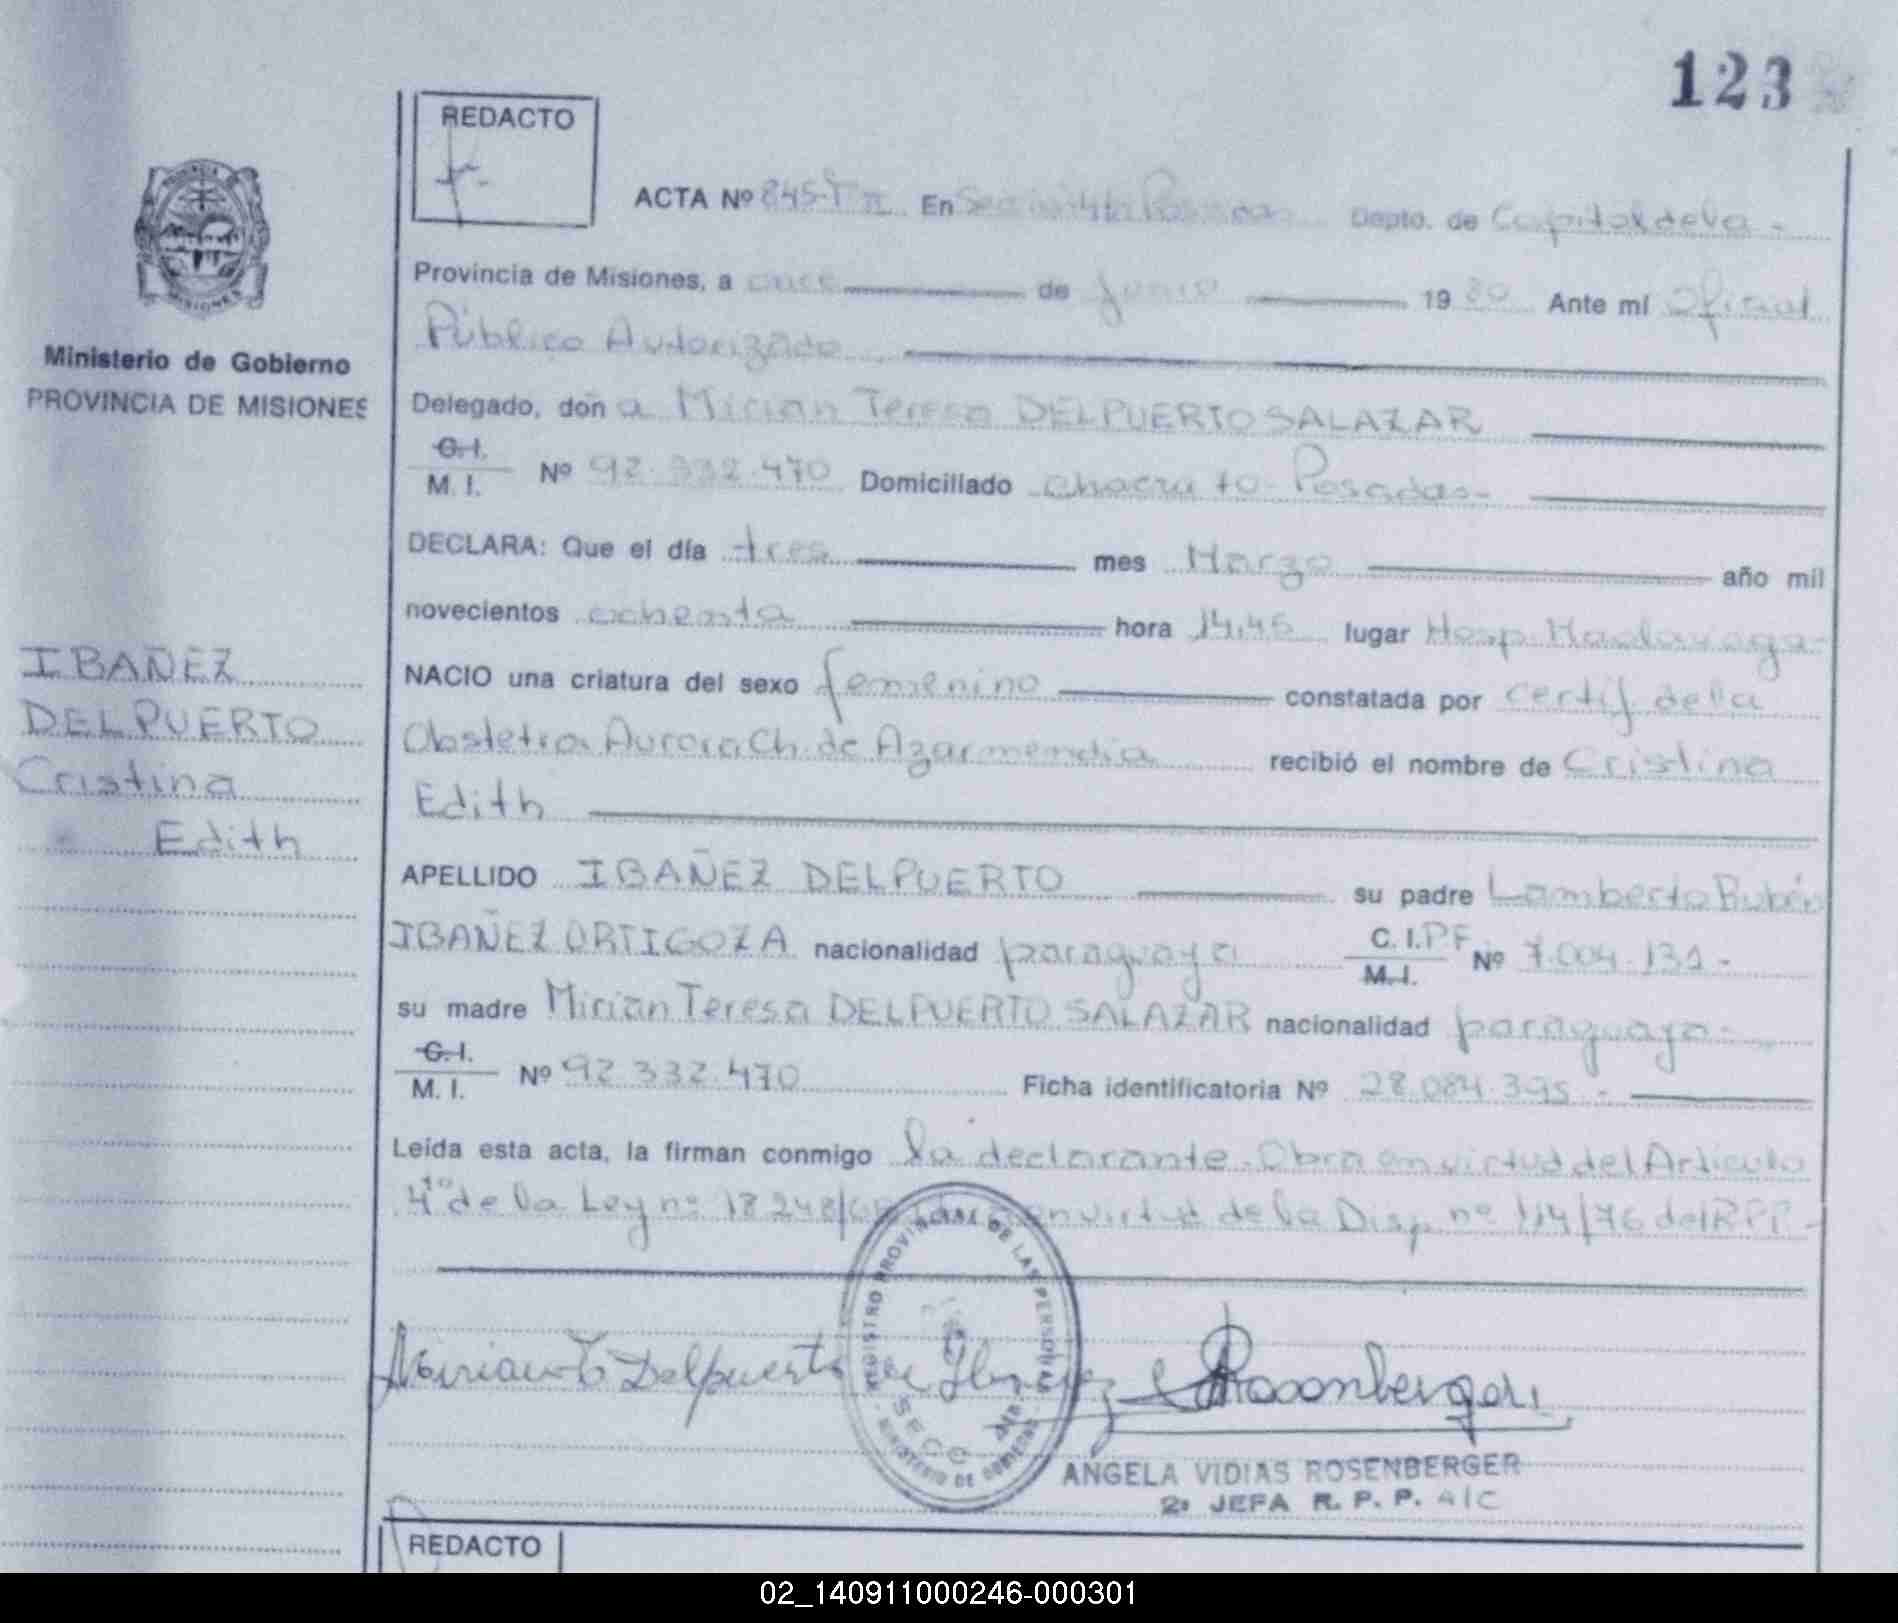 123
REDACTO
PROVINCIA DE MISIONES
ACTA Nº 845-T II En Sección 4ta Posadas Depto. de Capital de la -
Provincia de Misiones, a once de junio 1980 Ante mí Oficial
Público Autorizado
Ministerio de Gobierno
PROVINCIA DE MISIONES
Delegado, don a Mirian Teresa DELPUERTO SALAZAR
C. I.
M. I. Nº 92.332.470 Domiciliado chacra 10 - Posadas-
DECLARA: Que el día tres mes Marzo año mil
novecientos ochenta hora 14,45 lugar Hosp. Madariaga-
NACIO una criatura del sexo femenino constatada por certif de la
Obstetra Aurora Ch. de Azarmendia recibió el nombre de Cristina
Edith
IBAÑEZ
DELPUERTO
Cristina
Edith
APELLIDO IBAÑEZ DELPUERTO su padre Lamberto Rubén
IBAÑEZ ORTIGOZA nacionalidad paraguaya C. I. PF
M. I. Nº 7.004.131.-
su madre Mirian Teresa DELPUERTO SALAZAR nacionalidad paraguaya-
C. I.
M. I. Nº 92.332.470 Ficha identificatoria Nº 28.084.395.-
Leída esta acta, la firman conmigo la declarante. Obra en virtud del Artículo
4to de la Ley nº 18248/69 en virtud de la Disp. nº 114/76 del RPP-
Mirian T Delpuerto de Ibañez
Rosenberger
REGISTRO PROVINCIAL DE LAS PERSONAS
MINISTERIO DE GOBIERNO
SECC
ANGELA VIDIAS ROSENBERGER
2º JEFA R. P. P. A/C
REDACTO
02_140911000246-000301